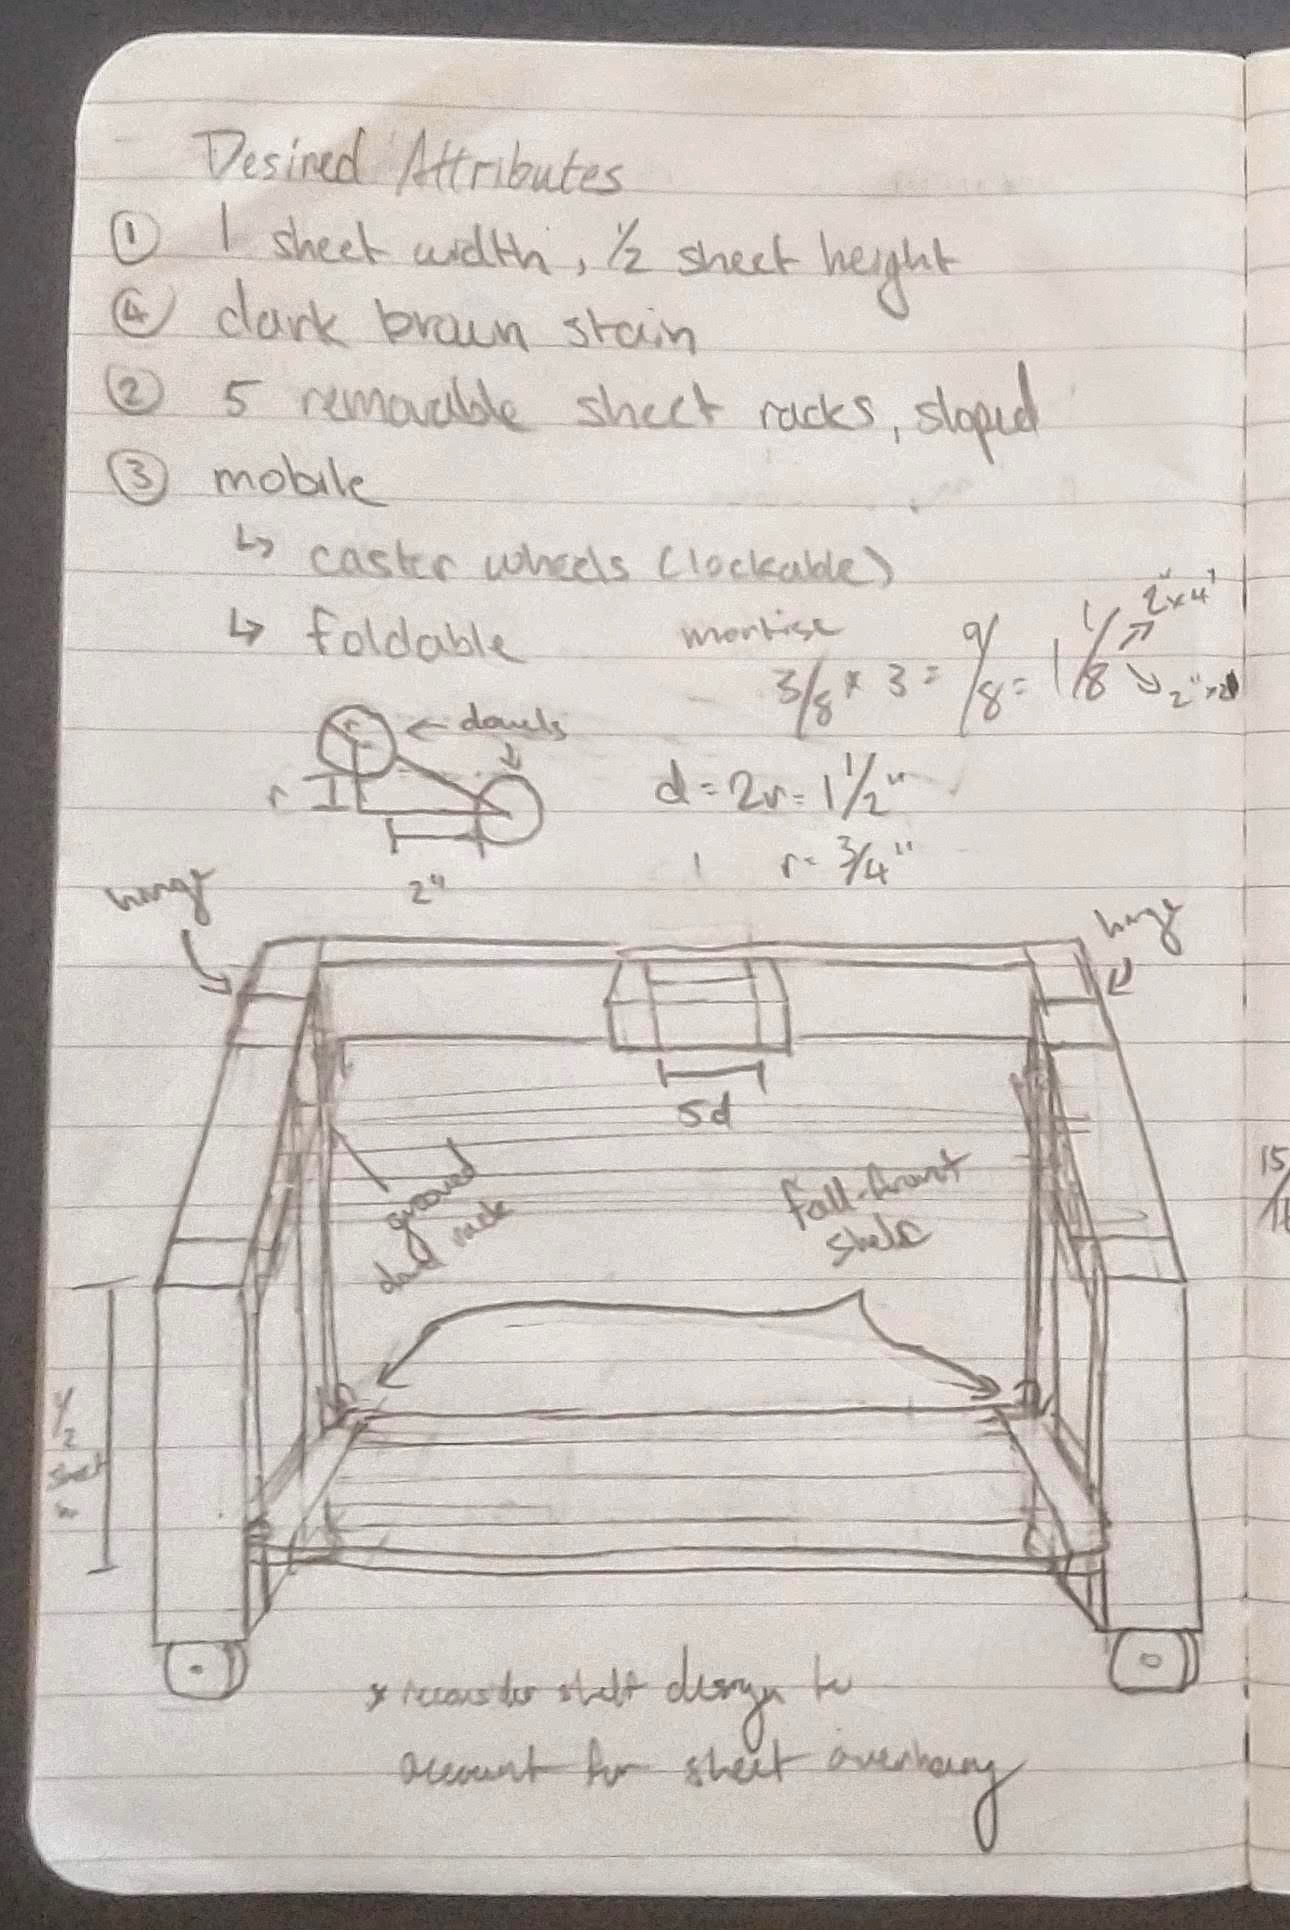 Desired Attributes
① 1 sheet width, 1/2 sheet height
④ dark brown stain
② 5 removable sheet racks, sloped
③ mobile
↳ caster wheels (lockable)
↳ foldable
mortise
3/8 × 3 = 9/8 = 1 1/8
2" × 4"
↘ 2" ×
← dowels
r
r
2"
d = 2r = 1 1/2"
r = 3/4"
hinge
hinge
5d
grooved
rack
fall-front
shelf
1/2
sheet
h
* reconsider shelf design to
account for sheet overhang
15/16